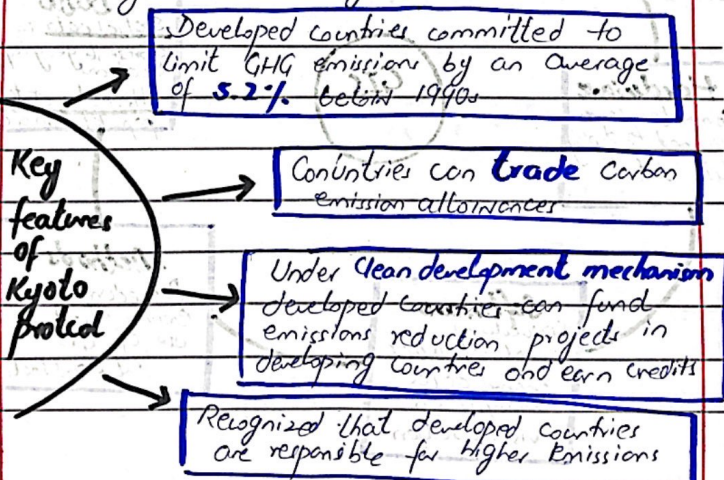 Developed countries committed to
limit GHG emissions by an average
of 5.2% below 1990s
Conuntries can trade Carbon
emission allowances
Key
features
of
Kyoto
protcol
Under Clean development mechanism
developed countries can fund
emissions reduction projects in
developing countries and earn credits
Recognized that developed countries
are responsible for higher Emissions